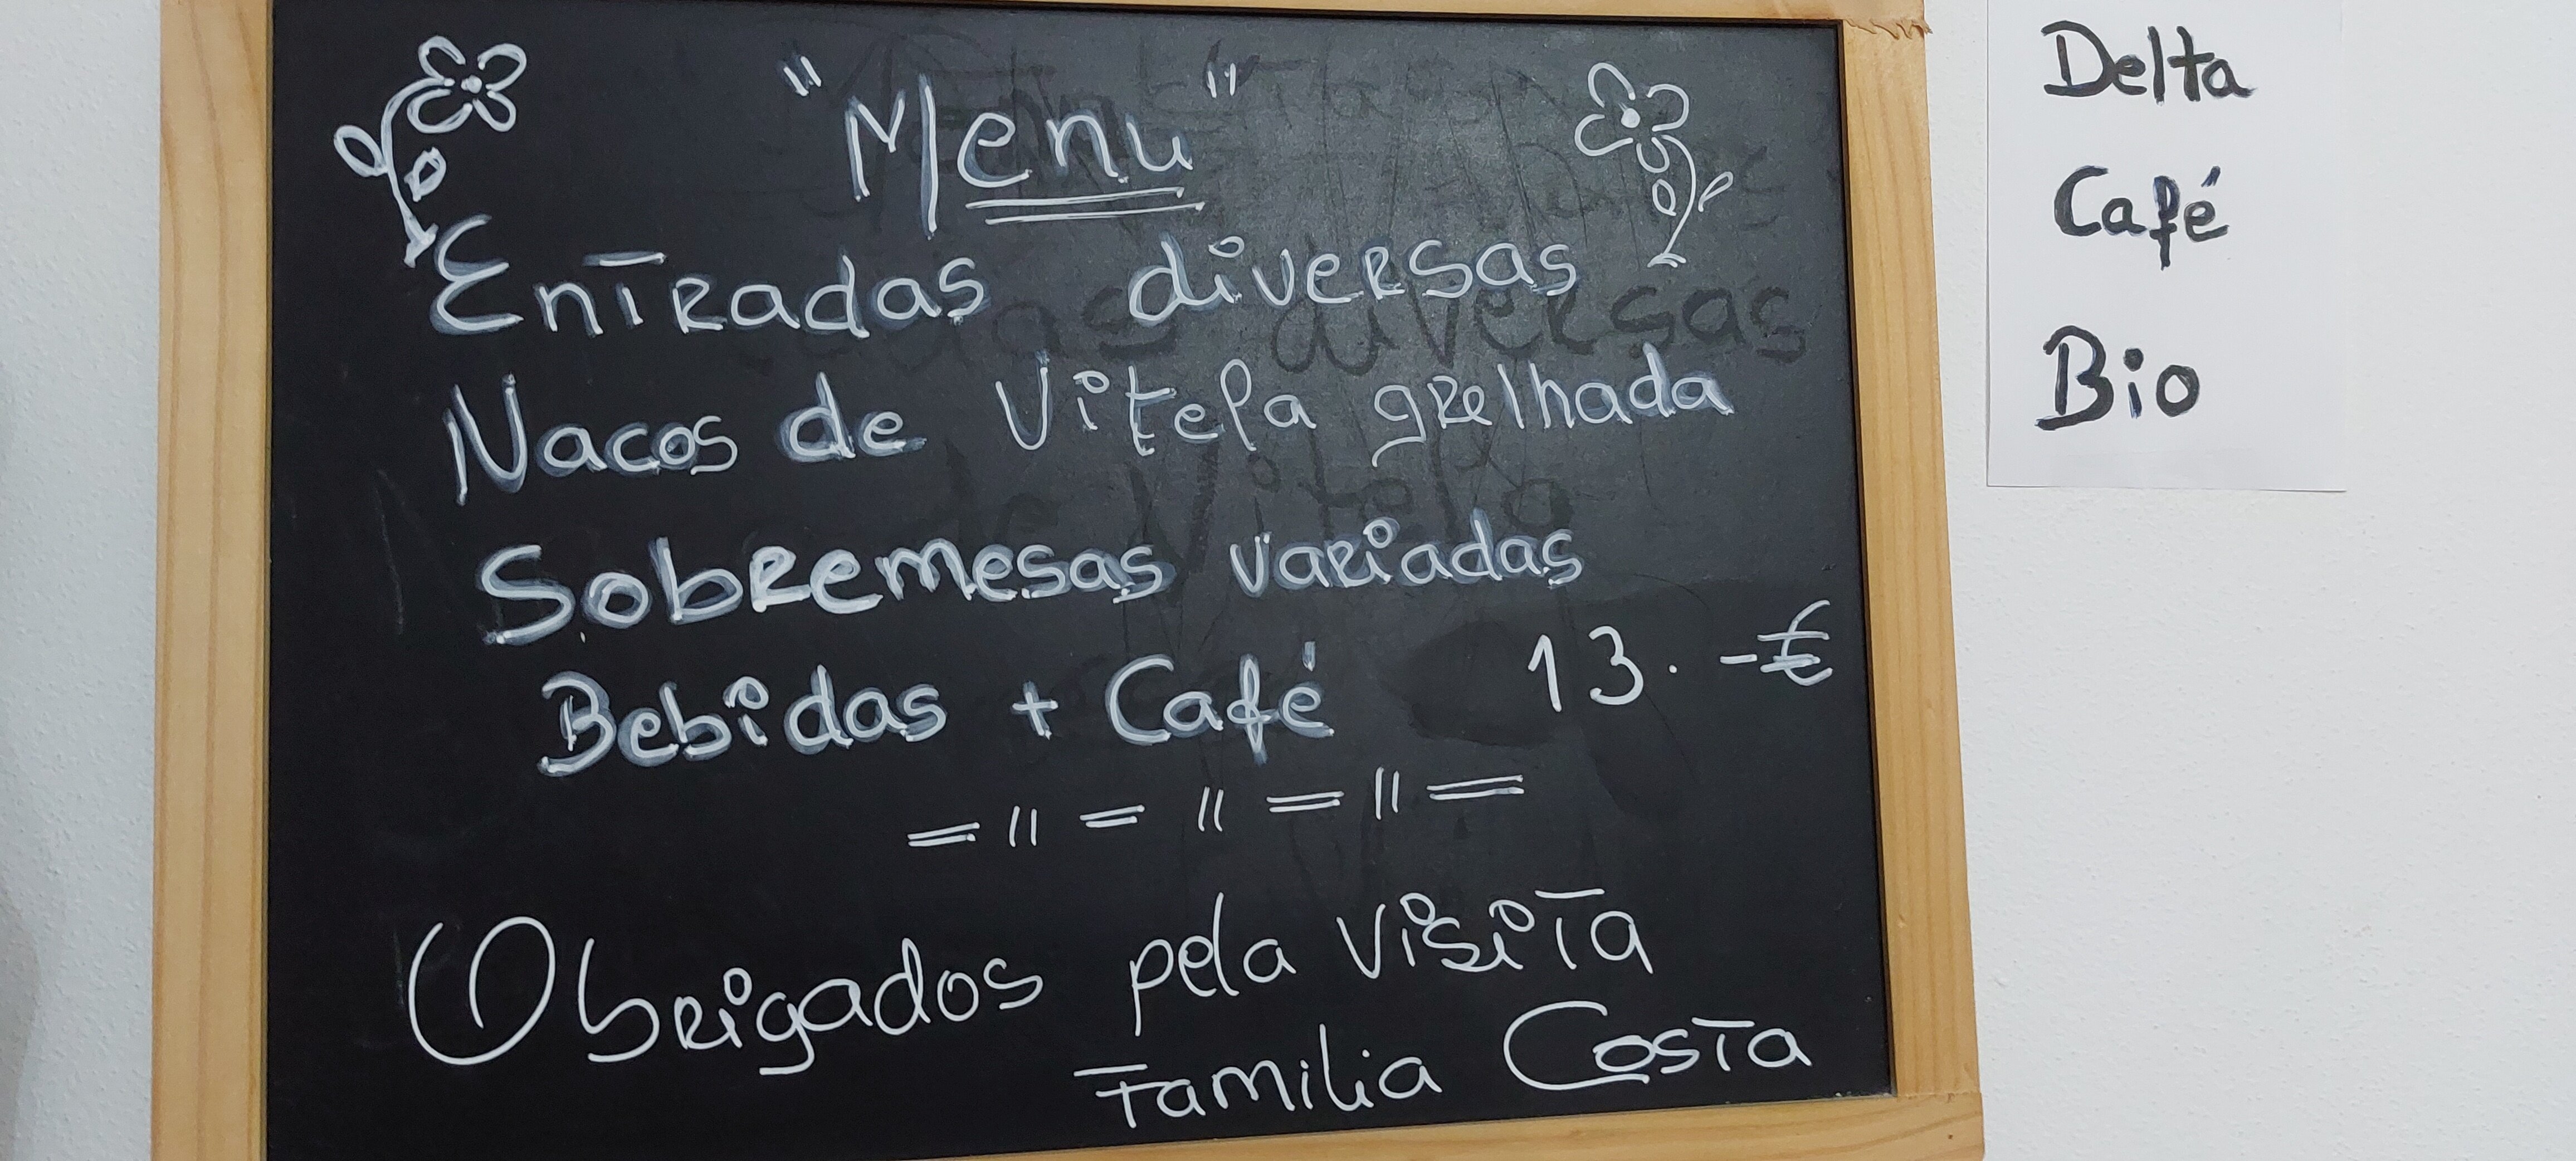 "Menu"
Entradas diversas
Nacos de Vitela grelhada
Sobremesas variadas
Bebidas + Café 13.-€
= || = || = || =
Obrigados pela visita
Familia Costa
Delta
Café
Bio